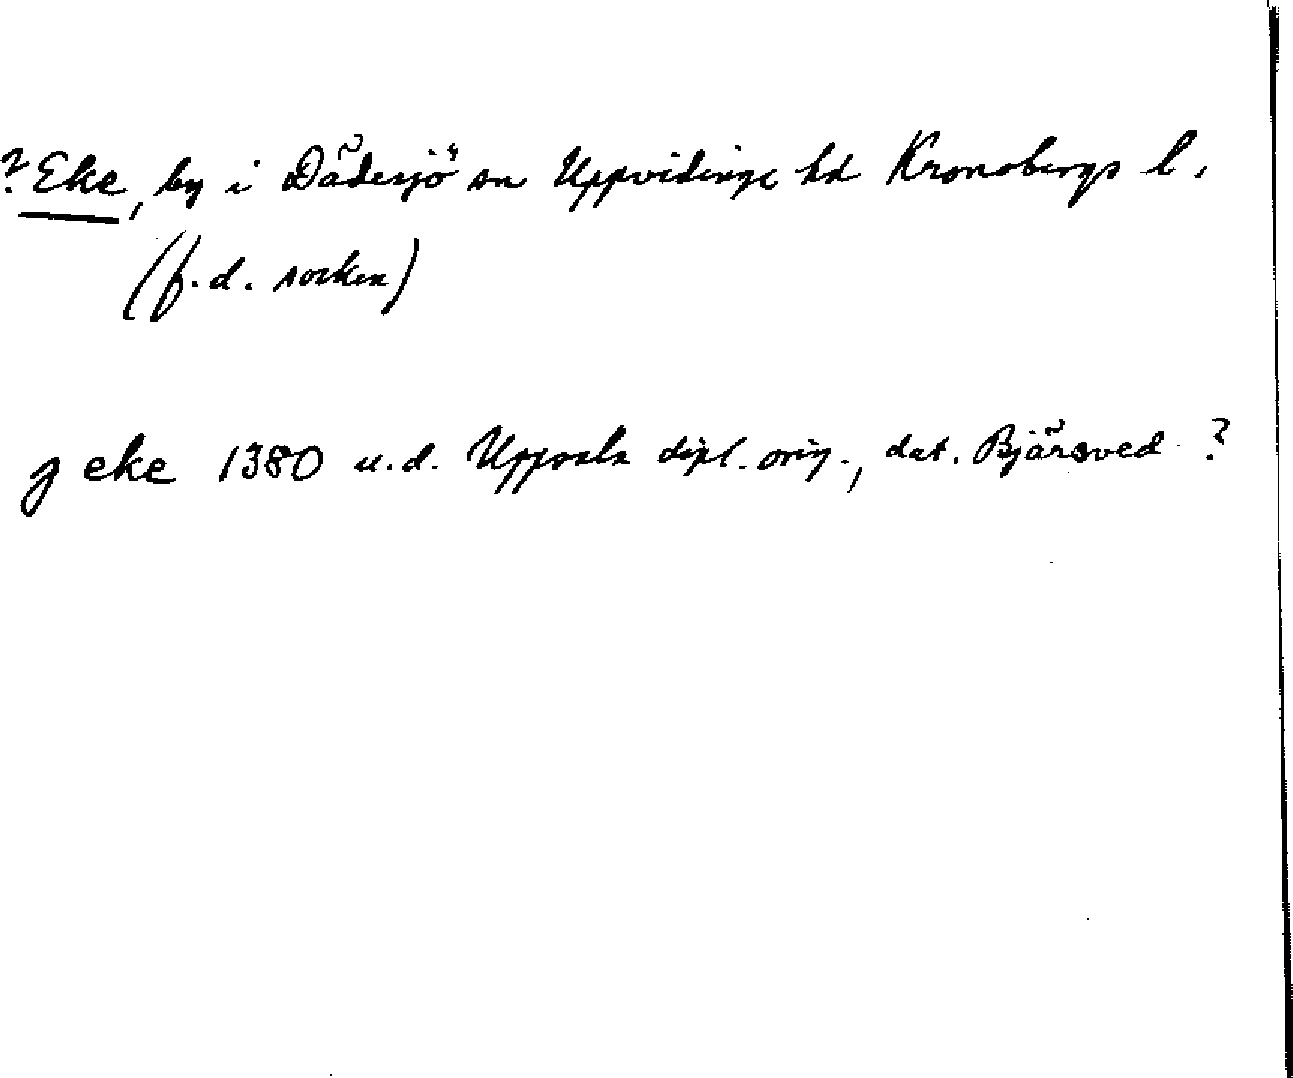 ? Eke, by i Dädesjö sn Uppvidinge hd Kronobergs l.
(f.d. socken)
J eke 1380 u.d. Uppsala dipl. orig., dat. Bjärsved ?